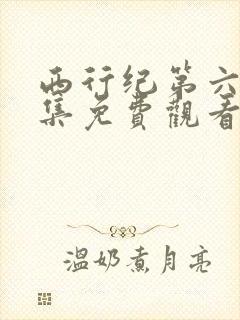 西行纪第六
集免費觀看
溫奶煮月亮